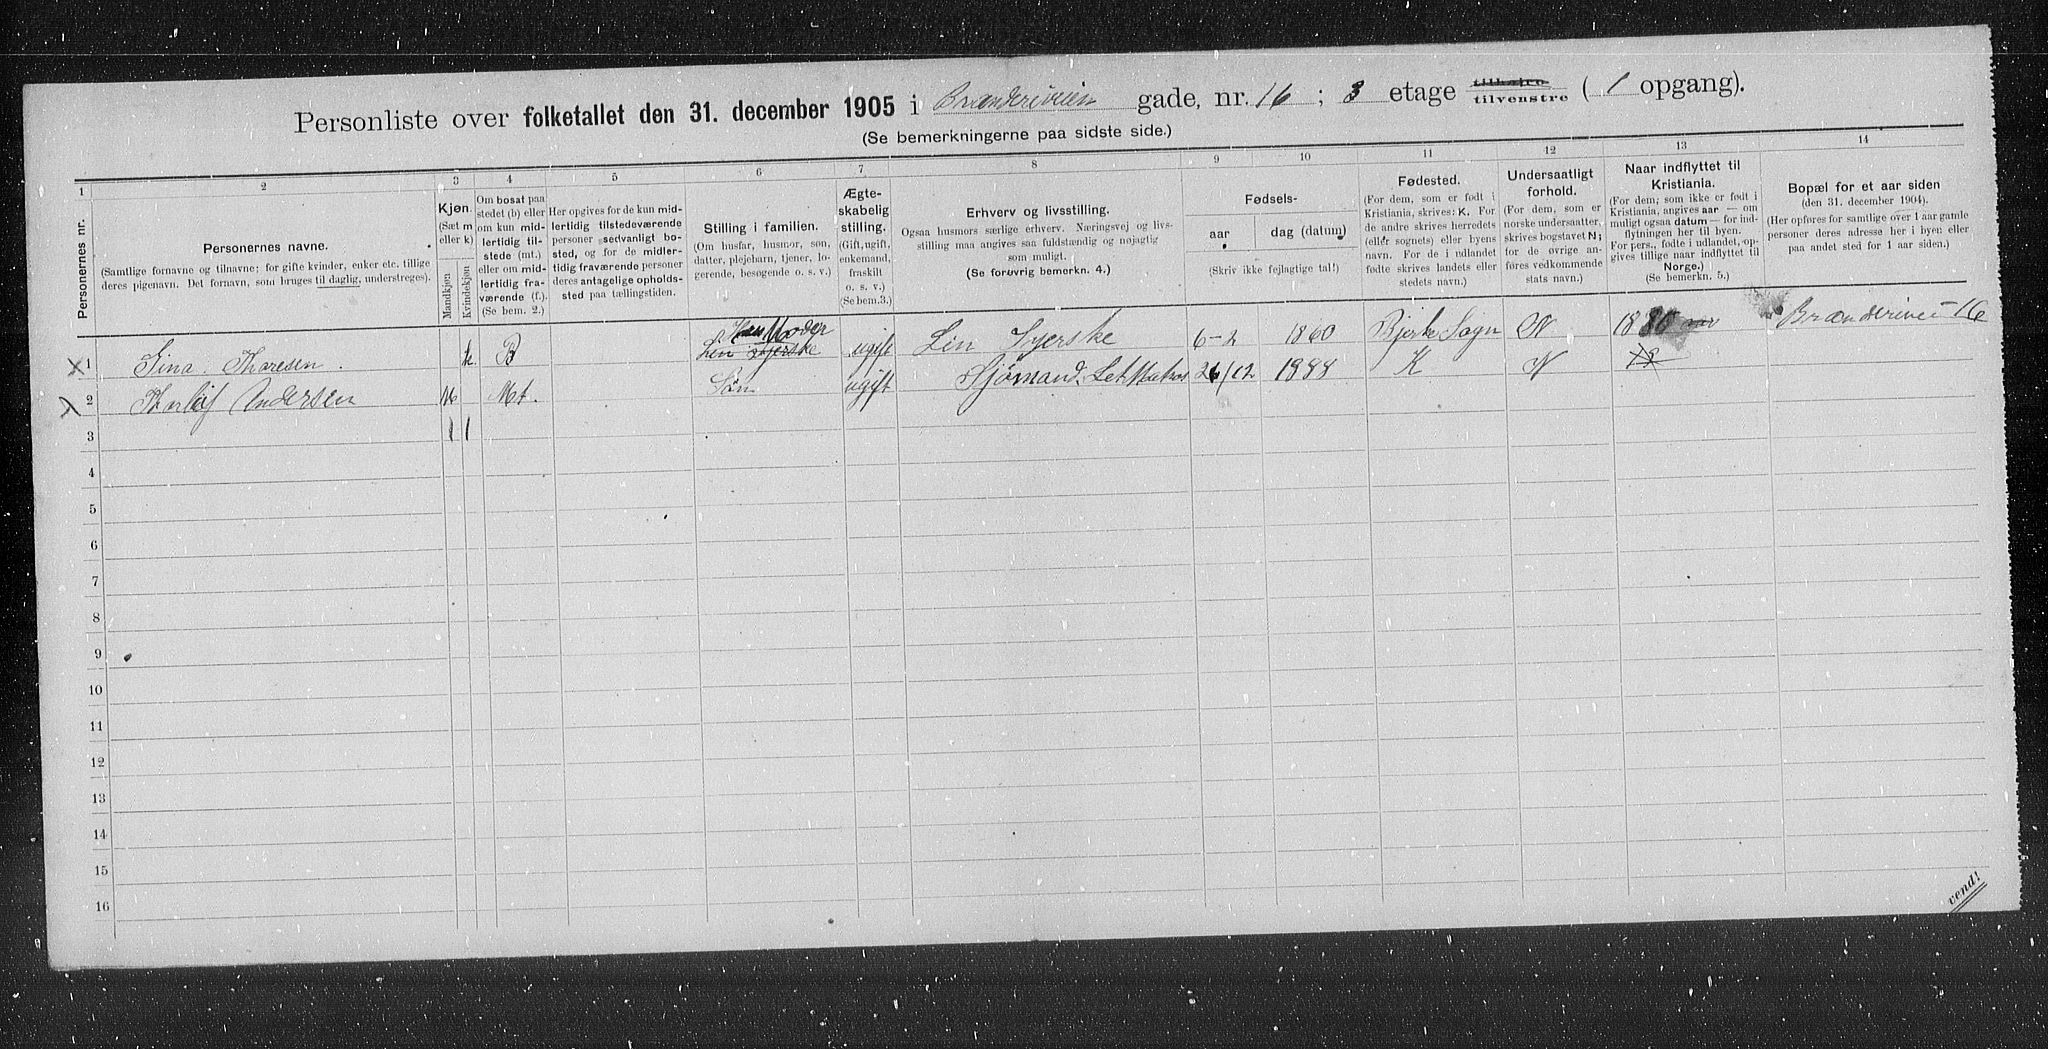 Personliste over folketallet den 31. december 1905 i Brænderiveien gade, nr. 16 ; 3 etage tilhøire tilvenstre ( 1 opgang).
(Se bemerkningerne paa sidste side.)
1 2 3 4 5 6 7 8 9 10 11 12 13 14
Personernes nr.
Personernes navne.
(Samtlige fornavne og tilnavne; for gifte kvinder, enker etc. tillige
deres pigenavn. Det fornavn, som bruges til daglig, understreges).
Kjøn.
(Sæt m
eller k)
Mandkjøn
Kvindekjøn
Om bosat paa
stedet (b) eller
om kun mid-
lertidig til-
stede (mt.)
eller om mid-
lertidig fra-
værende (f.).
(Se bem. 2.)
Her opgives for de kun mid-
lertidig tilstedeværende
personer sedvanligt bo-
sted, og for de midler-
tidig fraværende personer
deres antagelige opholds-
sted paa tællingstiden.
Stilling i familien.
(Om husfar, husmor, søn,
datter, plejebarn, tjener, lo-
gerende, besøgende o. s. v.)
Ægte-
skabelig
stilling.
(Gift, ugift,
enkemand,
fraskilt
o. s. v.)
(Se bem.3.)
Erhverv og livsstilling.
Ogsaa husmors særlige erhverv. Næringsvej og livs-
stilling maa angives saa fuldstændig og nøjagtig
som muligt.
(Se forøvrig bemerkn. 4.)
Fødsels-
aar
dag (datum)
(Skriv ikke fejlagtige tal!)
Fødested.
(For dem, som er født i
Kristiania, skrives: K. For
de andre skrives herredets
(eller sognets) eller byens
navn. For de i udlandet
fødte skrives landets eller
stedets navn.)
Undersaatligt
forhold.
(For dem, som er
norske undersaatter,
skrives bogstavet N;
for de øvrige an-
føres vedkommende
stats navn.)
Naar indflyttet til
Kristiania.
(For dem; som ikke er født i
Kristiania, angives aar — om
muligt ogsaa datum — for ind-
flytningen her til byen.
For pers., fødte i udlandet, op-
gives tillige naar indflyttet til
Norge.)
(Se bemerkn. 5.)
Bopæl for et aar siden
(den 31. december 1904).
(Her opføres for samtlige over 1 aar gamle
personer deres adresse her i byen eller
paa andet sted for 1 aar siden.)
Moder
x 1 Gina Thoresen. k B Lin Syerske ugift Lin Syerske 6-2 1860 Bjerke Sogn N 1880 Brænderivei 16
x 2 Thorleif Andersen M Mt. Søn ugift Sjømand. Let Matros 26/12 1888 K N
3 1 1
4
5
6
7
8
9
10
11
12
13
14
15
16
vend!